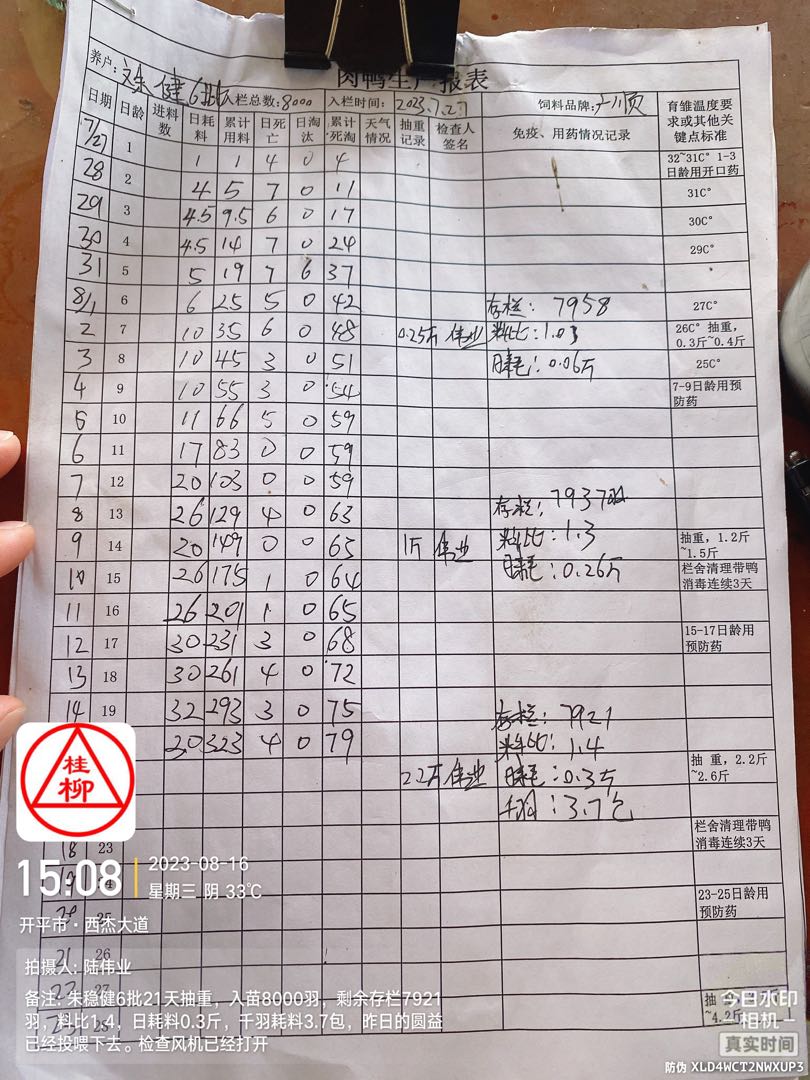 肉鸭生产报表
养户: 健6批 入栏总数:8000 入栏时间: 2023.7.27 饲料品牌:
日期 日龄 进料数 日耗料 累计用料 日死亡 日淘汰 累计死淘 天气情况 抽重记录 检查人签名 免疫、用药情况记录 育雏温度要求或其他关键点标准
7/27 1 1 1 4 0 4 32~31C° 1-3日龄用开口药
28 2 4 5 7 0 11 31C°
29 3 4.5 9.5 6 0 17 30C°
30 4 4.5 14 7 0 24 29C°
31 5 5 19 7 6 37
8/1 6 6 25 5 0 42 存栏: 7958 27C°
2 7 10 35 6 0 48 0.25斤 伟业 料比:1.03 26C° 抽重,0.3斤~0.4斤
3 8 10 45 3 0 51 日耗:0.06斤 25C°
4 9 10 55 3 0 54 7-9日龄用预防药
5 10 11 66 5 0 59
6 11 17 83 0 0 59
7 12 20 103 0 0 59
8 13 26 129 4 0 63 存栏: 7937羽
9 14 20 149 0 0 65 1斤 伟业 料比:1.3 抽重,1.2斤~1.5斤
10 15 26 175 1 0 64 日耗:0.26斤 栏舍清理带鸭消毒连续3天
11 16 26 201 1 0 65
12 17 30 231 3 0 68 15-17日龄用预防药
13 18 30 261 4 0 72
14 19 32 293 3 0 75 存栏: 7921
30 323 4 0 79 料比:1.4
2.2斤 伟业 日耗:0.3斤 抽 重,2.2斤~2.6斤
千羽:3.7包
18 23 栏舍清理带鸭消毒连续3天
25 23-25日龄用预防药
21 26
抽
~4.2斤
桂柳
15:08
2023-08-16
星期三 阴 33℃
开平市·西杰大道
拍摄人: 陆伟业
备注: 朱稳健6批21天抽重，入苗8000羽，剩余存栏7921
羽，料比1.4，日耗料0.3斤，千羽耗料3.7包，昨日的圆益
已经投喂下去。检查风机已经打开
今日水印
相机
真实时间
防伪 XLD4WCT2NWXUP3